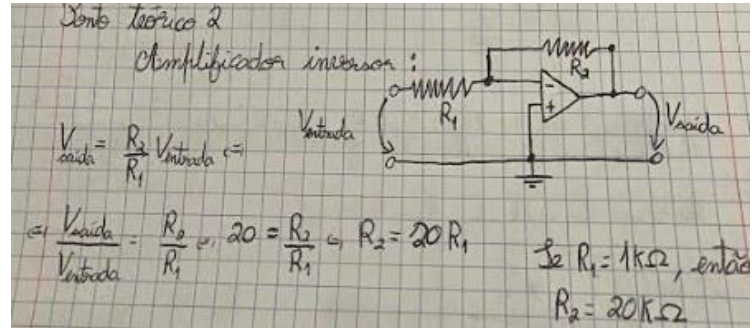 Ponto teórico 2
Amplificador inversor:
R₂
R₁
Ventrada
Vsaída
-
+
Vsaída = R₂/R₁ Ventrada ⇔
⇔ Vsaída/Ventrada = R₂/R₁ ⇔ 20 = R₂/R₁ ⇔ R₂ = 20 R₁
Se R₁ = 1KΩ, então
R₂ = 20KΩ